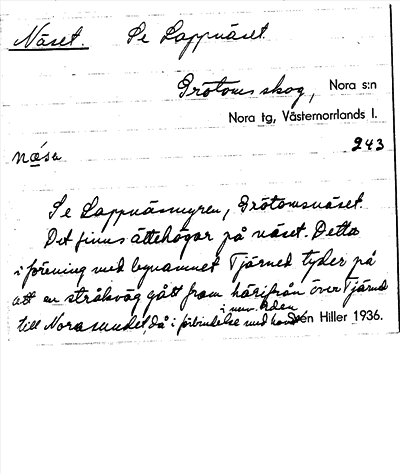 Näset. Se Lappnäset
Grötoms skog, Nora s:n
Nora tg, Västernorrlands l.
næ̀se 243
Se Lappnäsmyren, Grötomsnäset.
Det finns ättehögar på näset. Detta
i förening med bynamnet Tjärned tyder på
att en stråkväg gått fram härifrån över Tjärned
till Norasundet, då i förbindelse med havet
Sten Hiller 1936.